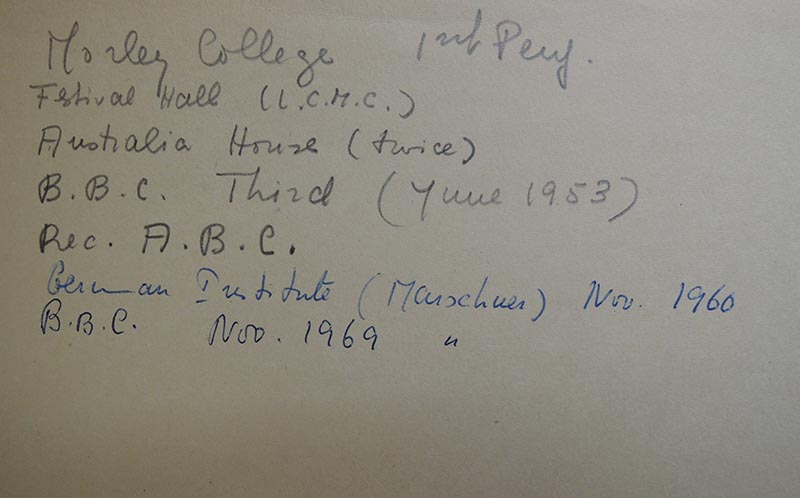 Morley College 1st Perf.
Festival Hall (L.C.M.C.)
Australia House (twice)
B.B.C. Third (June 1953)
Rec. A.B.C.
German Institute (Marschner) Nov. 1960
B.B.C. Nov. 1969 "